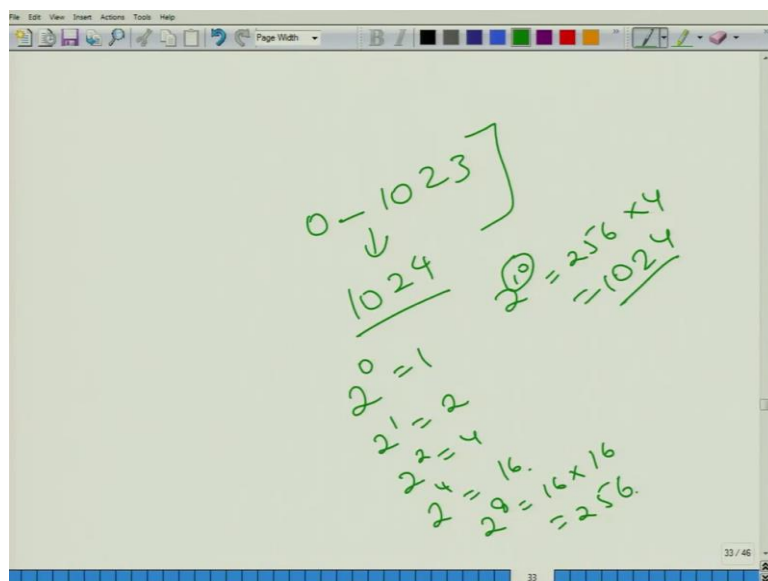 File Edit View Insert Actions Tools Help
Page Width
B I
0 - 1023]
↓
1024
2^10 = 256 × 4
= 1024
2^0 = 1
2^1 = 2
2^2 = 4
2^4 = 16.
2^8 = 16 × 16
= 256.
33 / 46
33